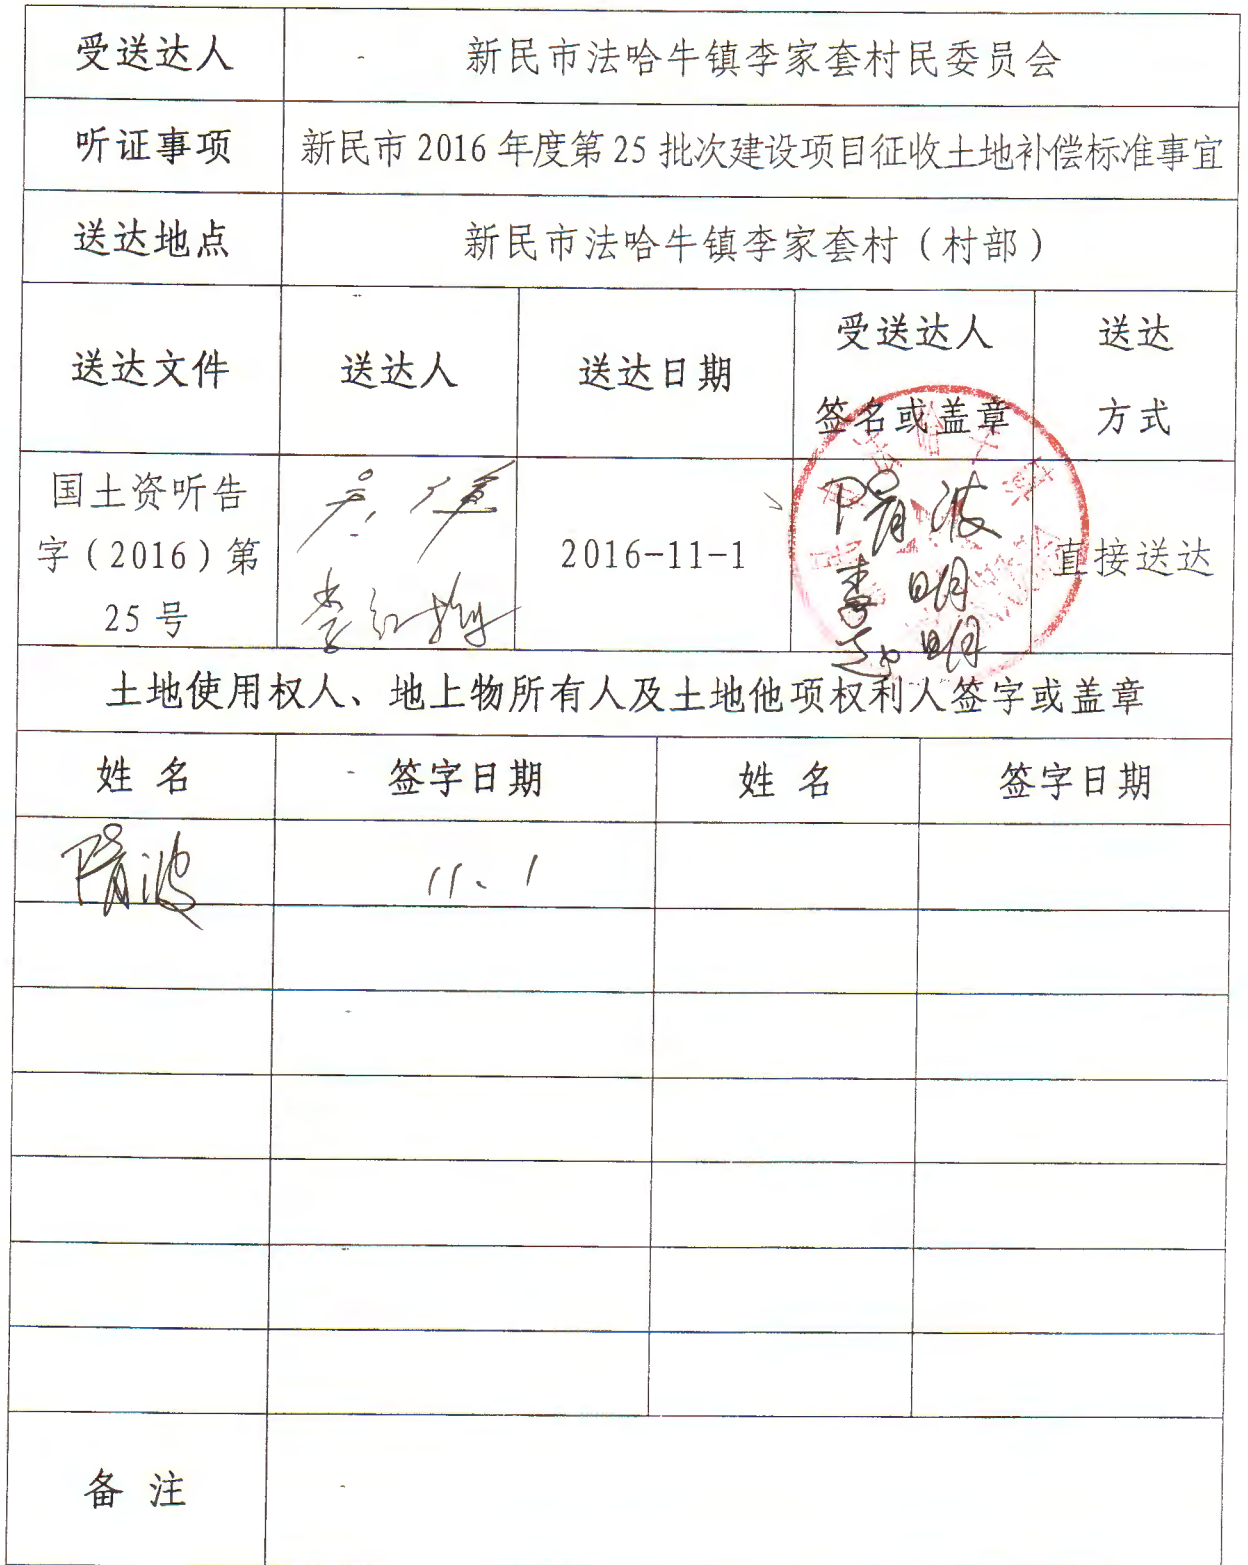 受送达人 新民市法哈牛镇李家套村民委员会
听证事项 新民市2016年度第25批次建设项目征收土地补偿标准事宜
送达地点 新民市法哈牛镇李家套村（村部）
送达文件 送达人 送达日期 受送达人 送达
签名或盖章 方式
国土资听告
字（2016）第
25号
2016-11-1
隋波
直接送达
土地使用权人、地上物所有人及土地他项权利人签字或盖章
姓 名 签字日期 姓 名 签字日期
隋波 11.1
备 注